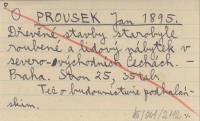 8
O PROUSEK Jan 1895.
Dřevěné stavby starobylé
roubené a lidový nábytek v
severo-východních Čechách. –
Praha. Shon 25, 35 tab.
Též o budovnictvie podhalán-
ském.